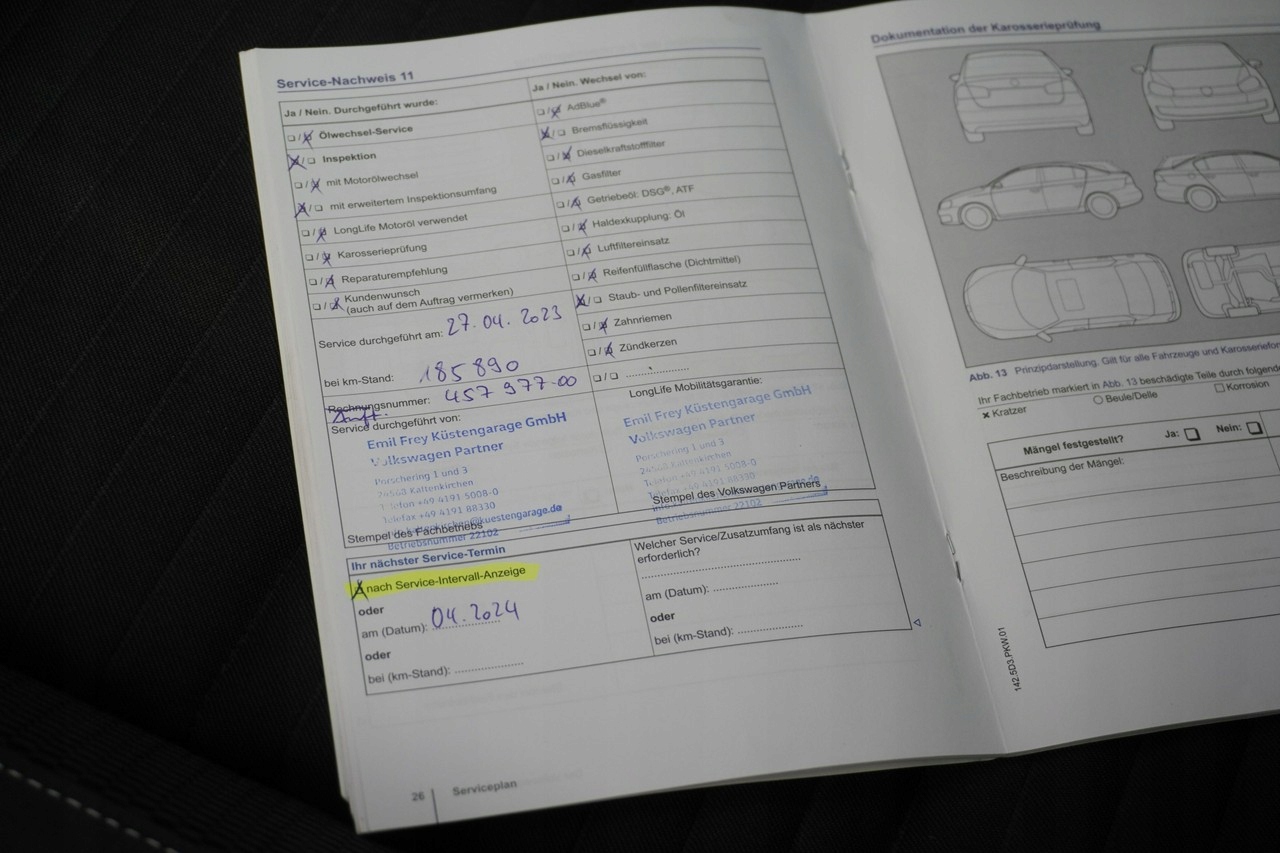 Service-Nachweis 11
Ja / Nein. Durchgeführt wurde:
❏/❏ Ölwechsel-Service
❏/❏ Inspektion
❏/❏ mit Motorölwechsel
❏/❏ mit erweitertem Inspektionsumfang
❏/❏ LongLife Motoröl verwendet
❏/❏ Karosserieprüfung
❏/❏ Reparaturempfehlung
❏/❏ Kundenwunsch
(auch auf dem Auftrag vermerken)
Service durchgeführt am: 27.04.2023
bei km-Stand: 185890
Rechnungsnummer: 457 977-00
Service durchgeführt von:
Emil Frey Küstengarage GmbH
Volkswagen Partner
Porschering 1 und 3
24568 Kaltenkirchen
Telefon +49 4191 5008-0
Telefax +49 4191 88330
Stempel des Fachbetriebs
Betriebsnummer 22102
Ja / Nein. Wechsel von:
❏/❏ AdBlue®
❏/❏ Bremsflüssigkeit
❏/❏ Dieselkraftstofffilter
❏/❏ Gasfilter
❏/❏ Getriebeöl: DSG®, ATF
❏/❏ Haldexkupplung: Öl
❏/❏ Luftfiltereinsatz
❏/❏ Reifenfüllflasche (Dichtmittel)
❏/❏ Staub- und Pollenfiltereinsatz
❏/❏ Zahnriemen
❏/❏ Zündkerzen
❏/❏ ....................
LongLife Mobilitätsgarantie:
Emil Frey Küstengarage GmbH
Volkswagen Partner
Porschering 1 und 3
24568 Kaltenkirchen
Telefon +49 4191 5008-0
Telefax +49 4191 88330
Stempel des Volkswagen Partners
Betriebsnummer 22102
Ihr nächster Service-Termin
❏ nach Service-Intervall-Anzeige
oder
am (Datum): 04.2024
oder
bei (km-Stand): ....................
Welcher Service/Zusatzumfang ist als nächster
erforderlich?
am (Datum): ....................
oder
bei (km-Stand): ....................
26 Serviceplan
Dokumentation der Karosserieprüfung
Abb. 13 Prinzipdarstellung. Gilt für alle Fahrzeuge und
Ihr Fachbetrieb markiert in Abb. 13 beschädigte Teile durch
× Kratzer ○ Beule/Delle □ Korrosion
Mängel festgestellt? Ja: ❏ Nein: ❏
Beschreibung der Mängel:
142.5D3.PKW.01